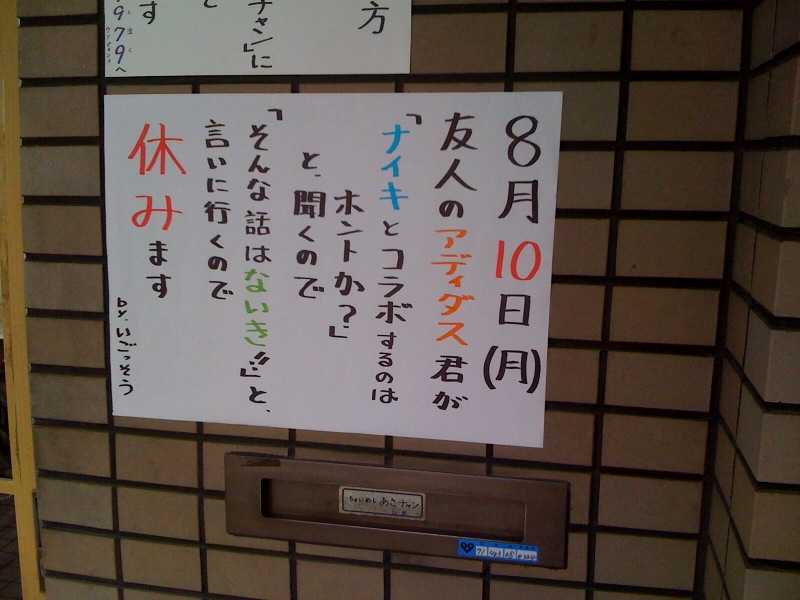 方
チャン」に
と
す
979へ
8月10日(月)
友人のアディダス君が
「ナイキとコラボするのは
ホントか?」
と、聞くので
「そんな話はないき!!」と、
言いに行くので
休みます
by.いごっそう
ちょいめし あさチャン